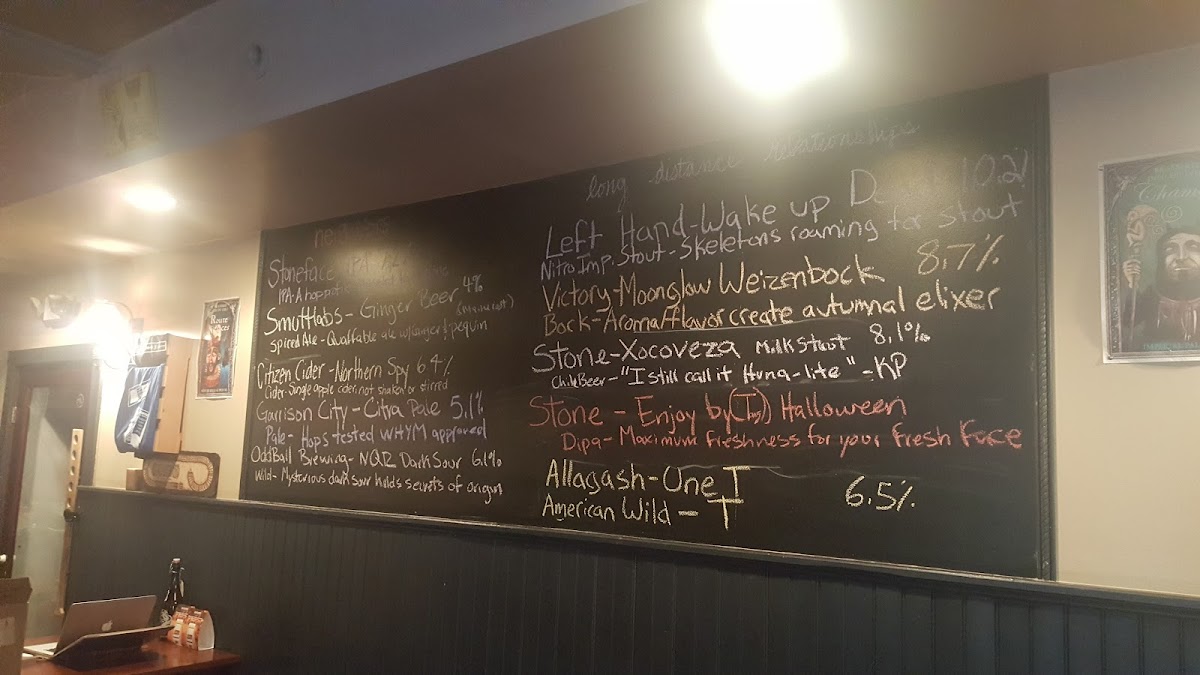 Stoneface IPA
IPA-A hop
Smuttlabs - Ginger Beer 4%
Spiced Ale - Quaffable ale w/ ginger & pequin
Citizen Cider - Northern Spy 6.4%
Cider - Single apple cider, not shaken or stirred
Garrison City - Citra Pale 5.1%
Pale - Hops tested WHYM approved
OddBall Brewing - NQR Dark Sour 6.1%
Wild - Mysterious dark sour holds secrets of origin
long distance relationships
Left Hand - Wake up 10.2
Nitro Imp. Stout - Skeletons roaming for stout
Victory - Moonglow Weizenbock 8.7%
Bock - Aroma/flavor create autumnal elixer
Stone - Xocoveza Milk Stout 8.1%
Chile Beer - "I still call it Huna-lite" - KP
Stone - Enjoy by Halloween
Dipa - Maximum freshness for your fresh Face
Allagash - One T
American Wild - T 6.5%
Route
Cham